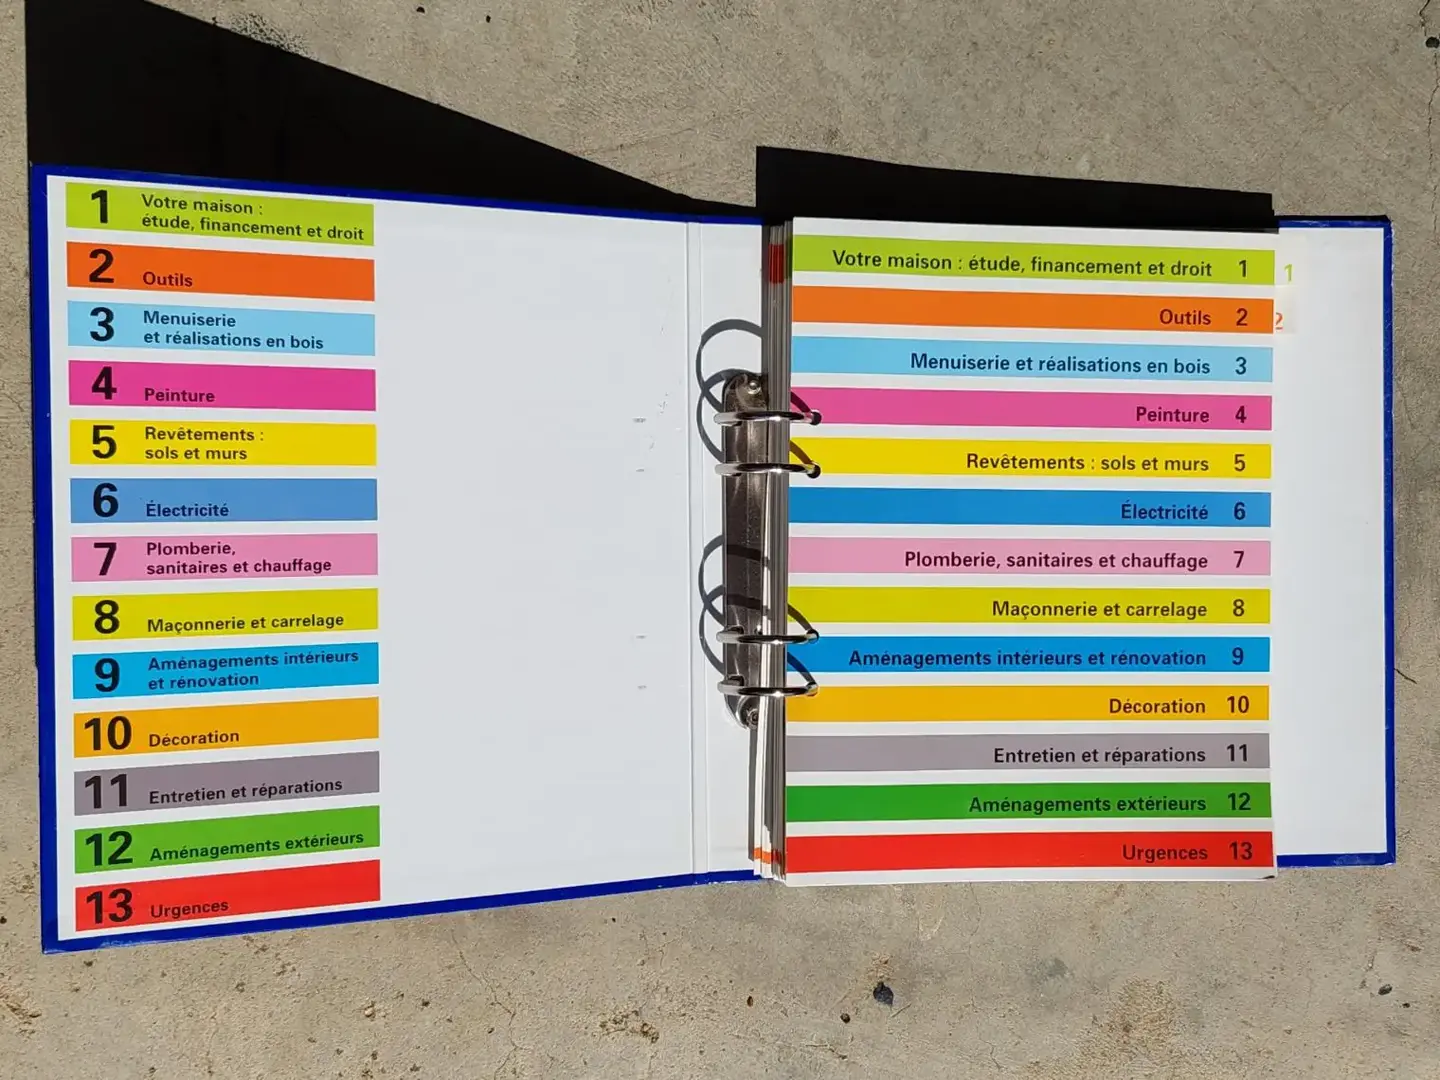 1
Votre maison :
étude, financement et droit
2
Outils
3
Menuiserie
et réalisations en bois
4
Peinture
5
Revêtements :
sols et murs
6
Électricité
7
Plomberie,
sanitaires et chauffage
8
Maçonnerie et carrelage
9
Aménagements intérieurs
et rénovation
10
Décoration
11
Entretien et réparations
12
Aménagements extérieurs
13
Urgences
Votre maison : étude, financement et droit 1
Outils 2
Menuiserie et réalisations en bois 3
Peinture 4
Revêtements : sols et murs 5
Électricité 6
Plomberie, sanitaires et chauffage 7
Maçonnerie et carrelage 8
Aménagements intérieurs et rénovation 9
Décoration 10
Entretien et réparations 11
Aménagements extérieurs 12
Urgences 13
1
2